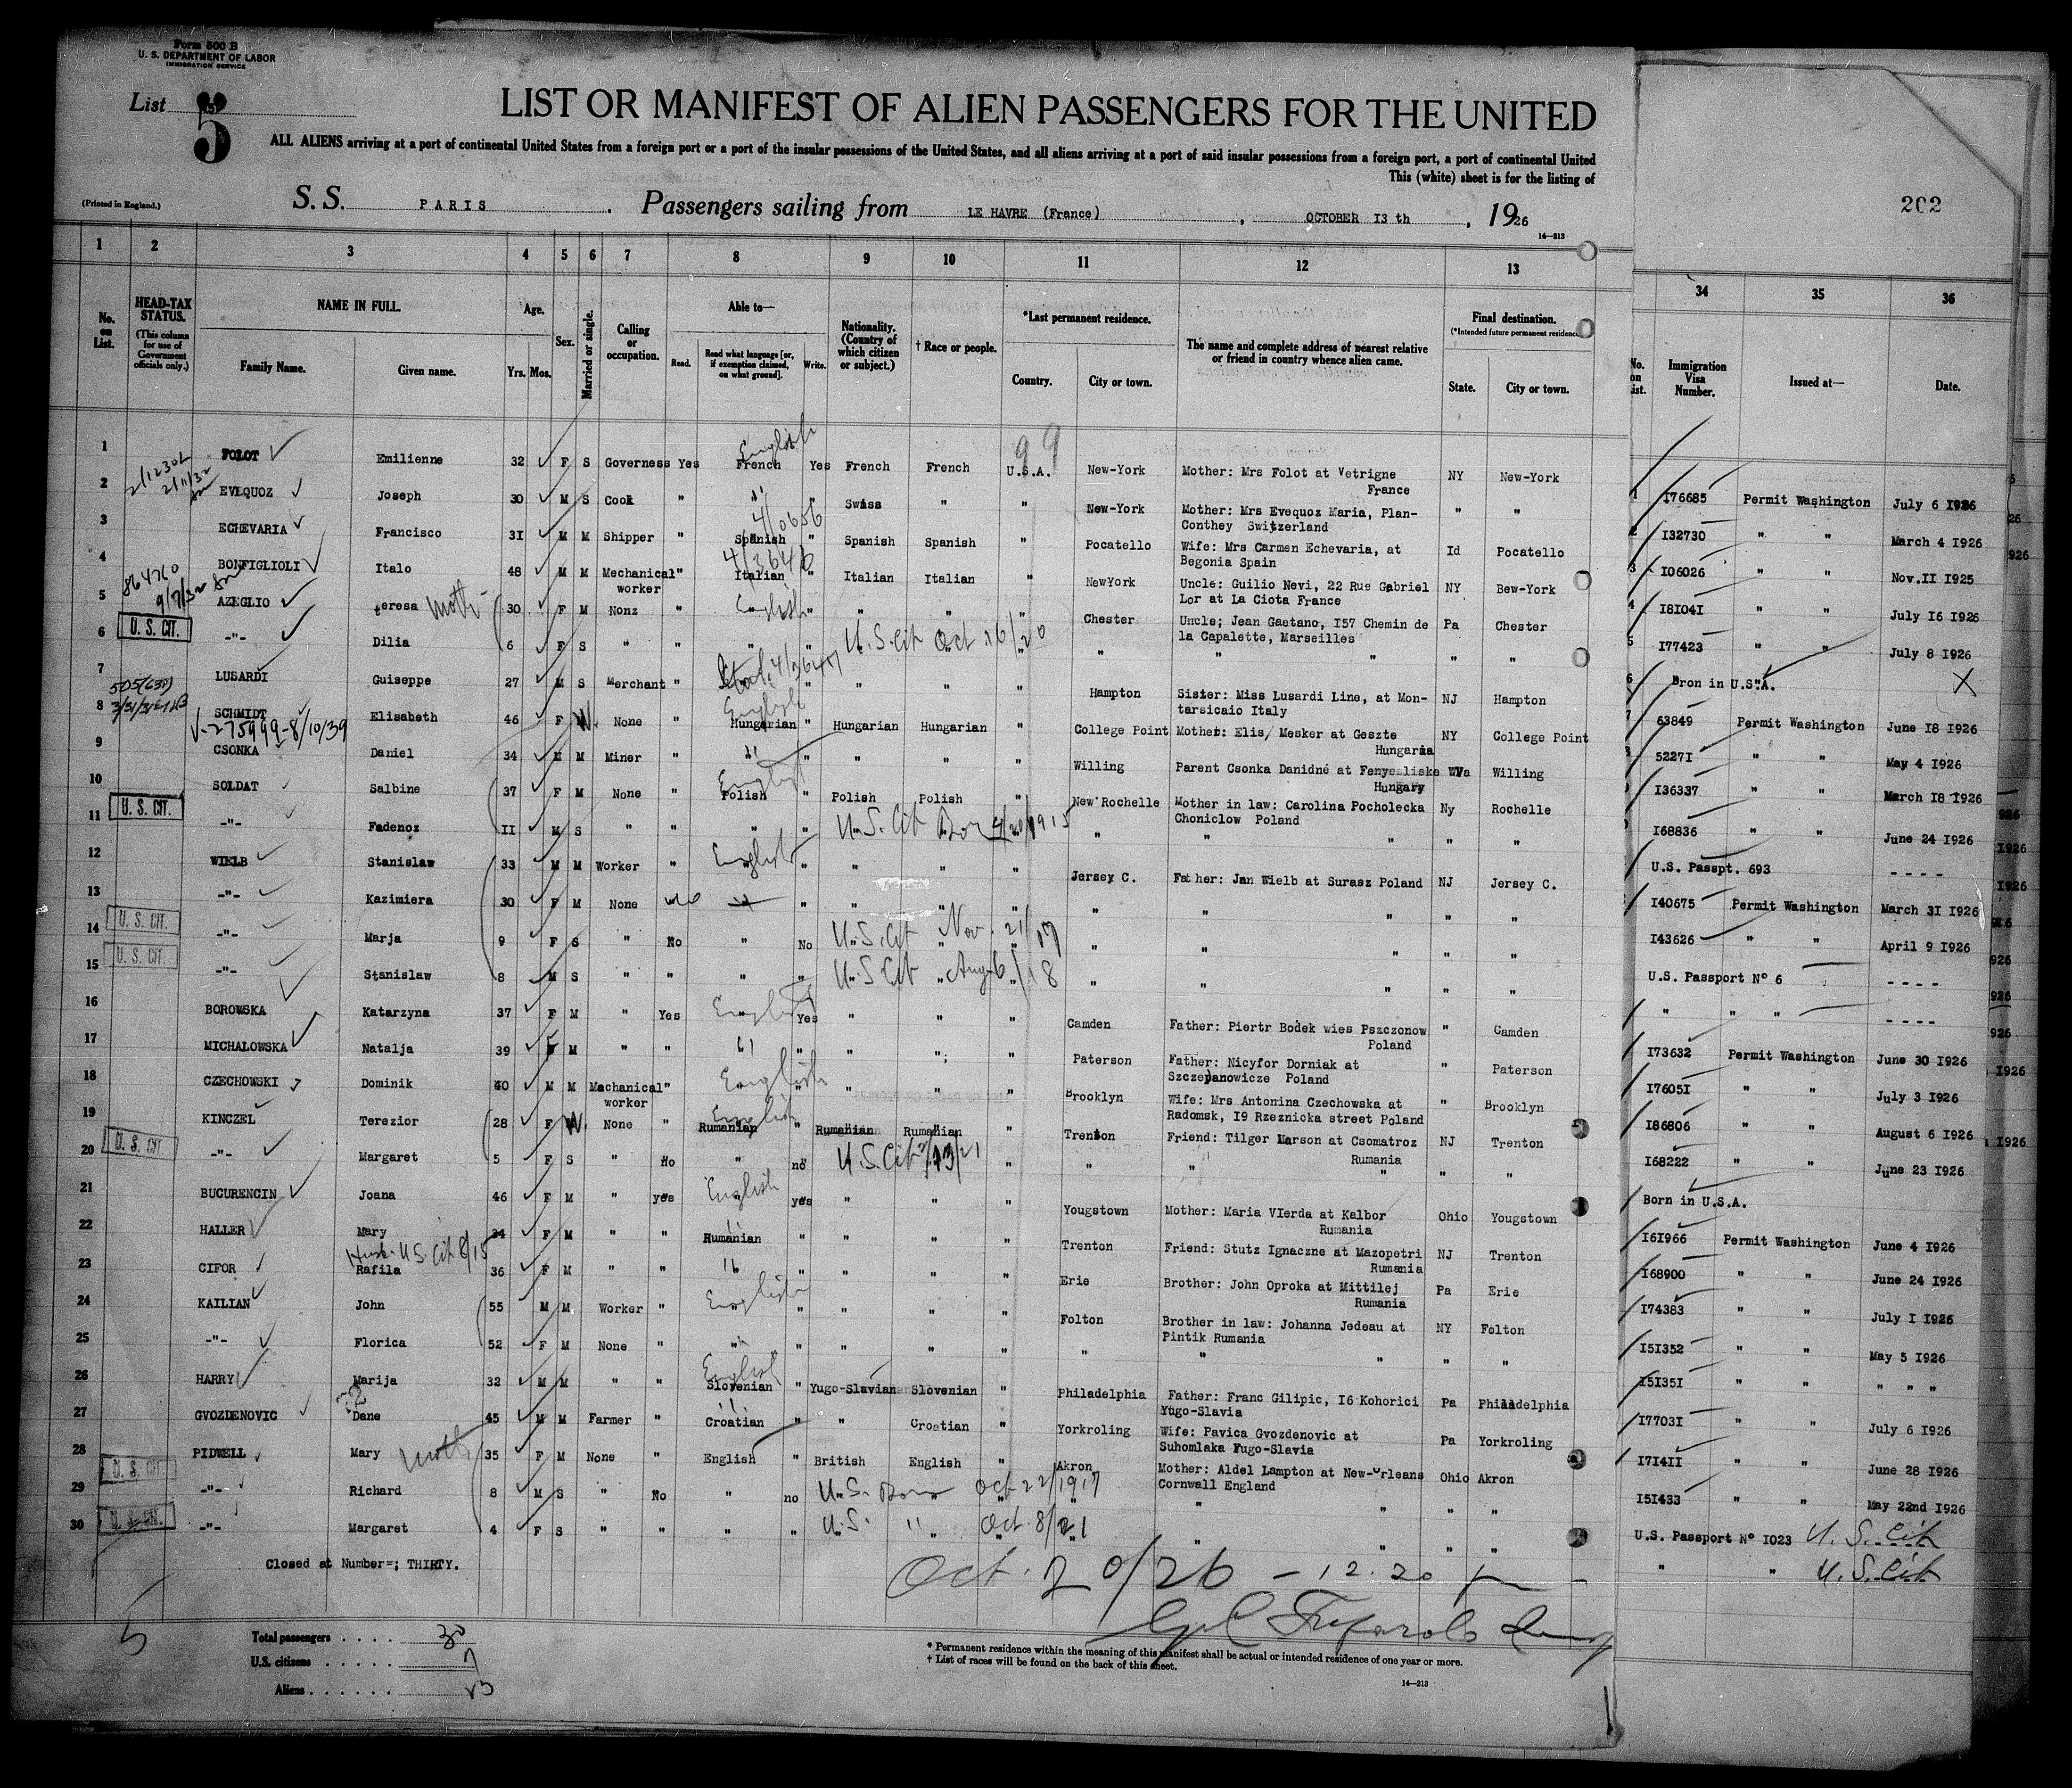 Form 500 B
U. S. DEPARTMENT OF LABOR
IMMIGRATION SERVICE
List 5
LIST OR MANIFEST OF ALIEN PASSENGERS FOR THE UNITED
ALL ALIENS arriving at a port of continental United States from a foreign port or a port of the insular possessions of the United States, and all aliens arriving at a port of said insular possessions from a foreign port, a port of continental United
This (white) sheet is for the listing of
(Printed in England.)
S. S. PARIS. Passengers sailing from LE HAVRE (France), OCTOBER I3 th, 1926
14—213
202
1 2 3 4 5 6 7 8 9 10 11 12 13 34 35 36
No. on List.
HEAD-TAX STATUS.
(This column for use of Government officials only.)
NAME IN FULL.
Family Name. Given name.
Age.
Yrs. Mos.
Sex.
Married or single.
Calling or occupation.
Able to—
Read. Read what language [or, if exemption claimed, on what ground]. Write.
Nationality. (Country of which citizen or subject.)
† Race or people.
*Last permanent residence.
Country. City or town.
The name and complete address of nearest relative or friend in country whence alien came.
Final destination.
(*Intended future permanent residence
State. City or town.
No. on List.
Immigration Visa Number.
Issued at—
Date.
1 FOLOT Emilienne 32 F S Governess Yes French English Yes French French U.S.A. New-York Mother: Mrs Folot at Vetrigne France NY New-York
99
2 EVEQUOZ Joseph 30 M S Cook " " " Swiss " " New-York Mother: Mrs Evequoz Maria, Plan-Conthey Switzerland " "
3 ECHEVARIA Francisco 3I M M Shipper " Spanish " Spanish Spanish " Pocatello Wife: Mrs Carmen Echevaria, at Begonia Spain Id Pocatello
4/0656
4 BONFIGLIOLI Italo 48 M M Mechanical worker " Italian " Italian Italian " NewYork Uncle: Guilio Nevi, 22 Rue Gabriel Lor at La Ciota France NY Bew-York
4/3646
5 AZEGLIO teresa 30 F M Nonz " English " " " " Chester Uncle; Jean Gaetano, I57 Chemin de la Capalette, Marseilles Pa Chester
U. S. CIT.
6 -"- Dilia 6 F S " " " " U.S. Cit Oct 16/20 " " " " "
7 LUSARDI Guiseppe 27 M S Merchant " " " " " Hampton Sister: Miss Lusardi Line, at Mon-tarsicaio Italy NJ Hampton
8 SCHMIDT Elisabeth 46 F W. None " Hungarian English " Hungarian Hungarian " College Point Mother: Elis/ Mesker at Geszte Hungaria NY College Point
V-275999-8/10/39
9 CSONKA Daniel 34 M M Miner " " " " " " Willing Parent Csonka Danidné at Fenyesliske Hungary WVa Willing
10 SOLDAT Salbine 37 F M None " Polish English " Polish Polish " New Rochelle Mother in law: Carolina Pocholecka Choniclow Poland Ny Rochelle
U. S. CIT.
11 -"- Fadenoz II M S " " " " U.S. Cit Born 4/20/1915 " " " " "
12 WIELB Stanislaw 33 M M Worker " English " " " " Jersey C. Father: Jan Wielb at Surasz Poland NJ Jersey C.
13 -"- Kazimiera 30 F M None no " " " " " " "
U. S. CIT.
14 -"- Marja 9 F S " No " No U.S. Cit Nov. 21/17 " " " " "
U. S. CIT.
15 -"- Stanislaw 8 M S " " " " U.S Cit Aug 6/18 " " " " "
16 BOROWSKA Katarzyna 37 F M " Yes English Yes " " " Camden Father: Piertr Bodek wies Pszczonow Poland " Camden
17 MICHALOWSKA Natalja 39 F M " " " " " " " Paterson Father: Nicyfor Dorniak at Szczepanowicze Poland " Paterson
18 CZECHOWSKI Dominik 40 M M Machanical worker " English " " " " Brooklyn Wife: Mrs Antonina Czechowska at Radomsk, I9 Rzeznicka street Poland " Brooklyn
19 KINCZEL Terezior 28 F W. None " Rumanian English " Rumanian Rumanian " Trenton Friend: Tilger Marson at Csomatroz Rumania NJ Trenton
U. S. CIT
20 -"- Margaret 5 F S " No " no U.S. Cit 2/13/21 " " " " "
21 BUCURENCIN Joana 46 F M " yes English yes " " " Yougstown Mother: Maria VIerda at Kalbor Rumania Ohio Yougstown
22 HALLER Mary 34 F M " " Rumanian " " " " Trenton Friend: Stutz Ignaczne at Mazopetri Rumania NJ Trenton
Husb. U.S. Cit 8/15
23 CIFOR Rafila 36 F M " " " " " " " Erie Brother: John Oproka at Mittilej Rumania Pa Erie
24 KAILIAN John 55 M M Worker " English " " " " Folton Brother in law: Johanna Jedeau at Pintik Rumania NY Folton
25 -"- Florica 52 F M None " " " " " " " " " "
26 HARRY Marija 32 M M " " Slovenian English " Yugo-Slavian Slovenian " Philadelphia Father: Franc Gilipic, I6 Kohorici Yugo-Slavia Pa Philadelphia
27 GVOZDENOVIC Dane 45 M M Farmer " Croatian " " Croatian " Yorkroling Wife: Pavica Gvozdenovic at Suhomlaka Fugo-Slavia Pa Yorkroling
28 PIDWELL Mary 35 F M None " English " British English " Akron Mother: Aldel Lampton at New-Orleans Cornwall England Ohio Akron
U. S. CIT
29 -"- Richard 8 M S " No " no U.S. Born Oct 22/1917 " " " "
U. S. CIT.
30 -"- Margaret 4 F S " " " " U.S. " Oct. 8/21 " " " "
Closed at Number=; THIRTY.
1 I76685 Permit Washington July 6 I926
2 I32730 " " March 4 I926
3 I06026 " " Nov.II I925
4 I8I04I " " July I6 I926
5 I77423 " " July 8 I926
6 Bron in U.S.A. X
7 63849 Permit Washington June I8 I926
5227I " " May 4 I926
I36337 " " March I8 I926
I68836 " " June 24 I926
U.S. Passpt. 693 - - - -
I40675 Permit Washington March 3I I926
I43626 " " April 9 I926
U.S. Passport Nº 6 - - - -
" " " - - - -
I73632 Permit Washington June 30 I926
I7605I " " July 3 I926
I86806 " " August 6 I926
I68222 " " June 23 I926
Born in U.S.A.
I6I966 Permit Washington June 4 I926
I68900 " " June 24 I926
I74383 " " July I I926
I5I352 " " May 5 I926
I5I35I " " " " "
I7703I " " July 6 I926
I7I4II " " June 28 I926
I5I433 " " May 22nd I926
U.S. Passport Nº I023 U.S. Cit
" " U.S. Cit
Oct. 20/26 – 12.20
5
Total passengers . . . . 30
U.S. citizens . . . . . 7
Aliens . . . . . . 23
* Permanent residence within the meaning of this manifest shall be actual or intended residence of one year or more.
† List of races will be found on the back of this sheet.
14—213